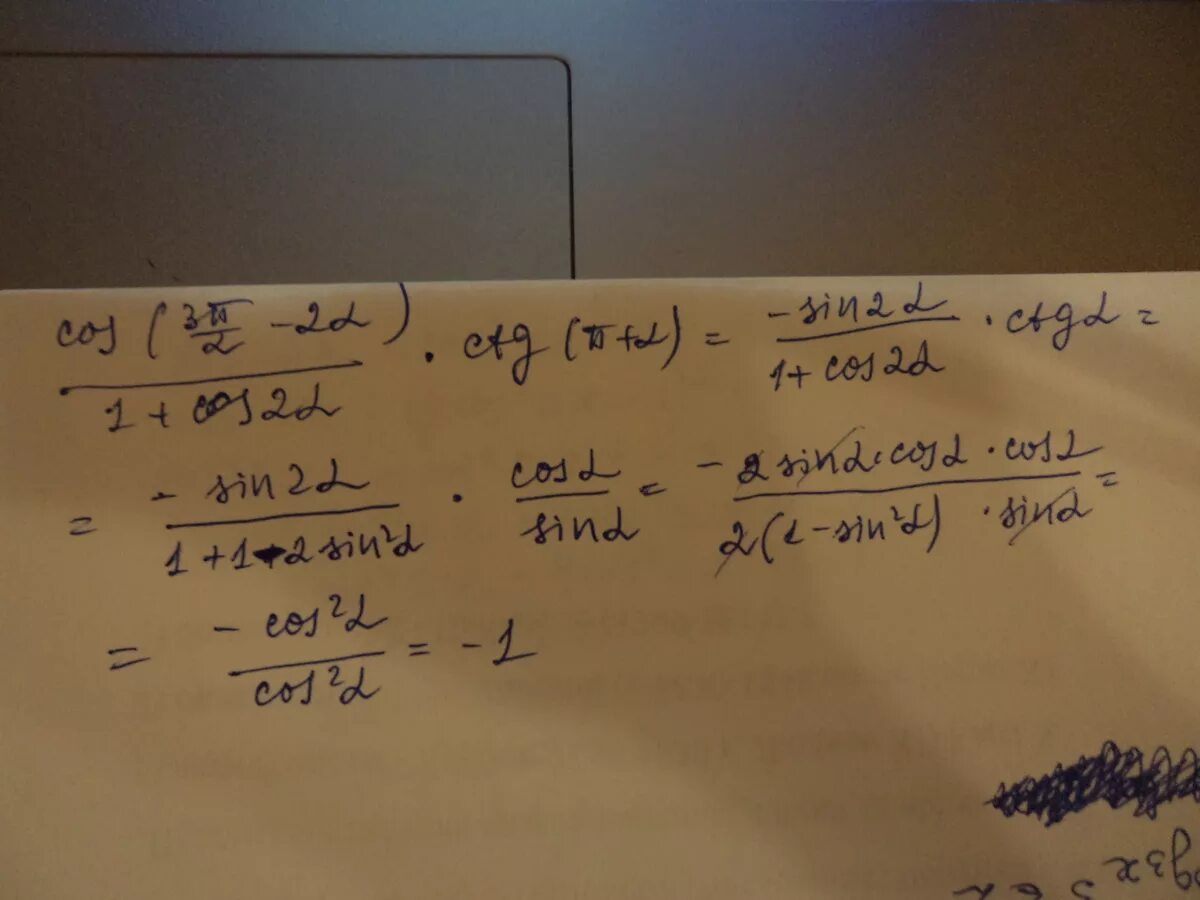 cos(3π/2 - 2α) / (1 + cos2α) · ctg(π+α) = -sin2α / (1 + cos2α) · ctgα =
= -sin2α / (1 + 1 - 2sin²α) · cosα / sinα = -2sinα·cosα·cosα / (2(1 - sin²α)·sinα) =
= -cos²α / cos²α = -1